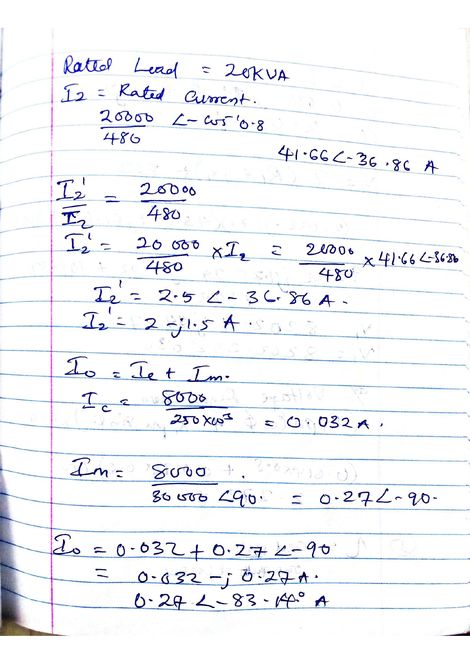 Rated Load = 20KVA
I2 = Rated Current.
20000/480 ∠-cos'0.8
41.66∠-36.86 A
I2'/I2 = 20000/480
I2' = 20 000/480 × I2 = 20000/480 × 41.66∠-36.86
I2' = 2.5 ∠-36.86 A.
I2' = 2 -j1.5 A.
Io = Ie + Im.
Ic = 8000/250×10³ = 0.032A.
Im = 8000/30 000 ∠90. = 0.27∠-90.
Io = 0.032 + 0.27∠-90
= 0.032 -j 0.27A.
0.27 ∠-83.14° A